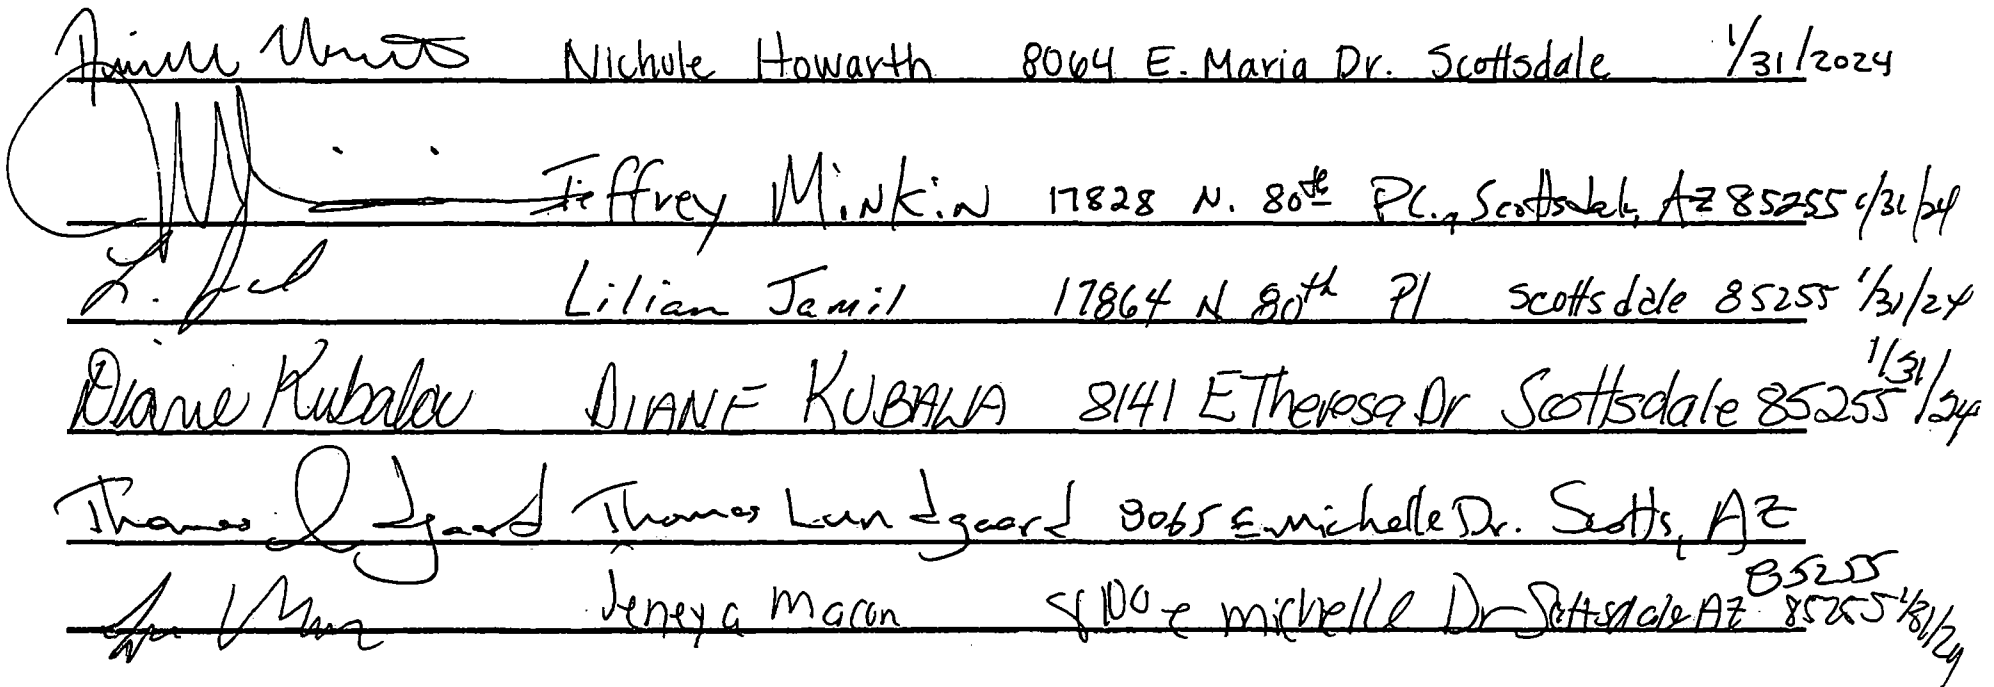 Nichole Howarth 8064 E. Maria Dr. Scottsdale 1/31/2024
Jeffrey Minkin 17828 N. 80th Pl., Scottsdale, AZ 85255 1/31/24
L. Lilian Jamil 17864 N 80th Pl Scottsdale 85255 1/31/24
Diane Kubala DIANE KUBALA 8141 E Theresa Dr Scottsdale 85255 1/31/24
Thomas Lundgaard Thomas Lundgaard 8065 E. Michelle Dr. Scotts, AZ
85255
Jeneya Macon 8100 E Michelle Dr Scottsdale AZ 85255 1/31/24